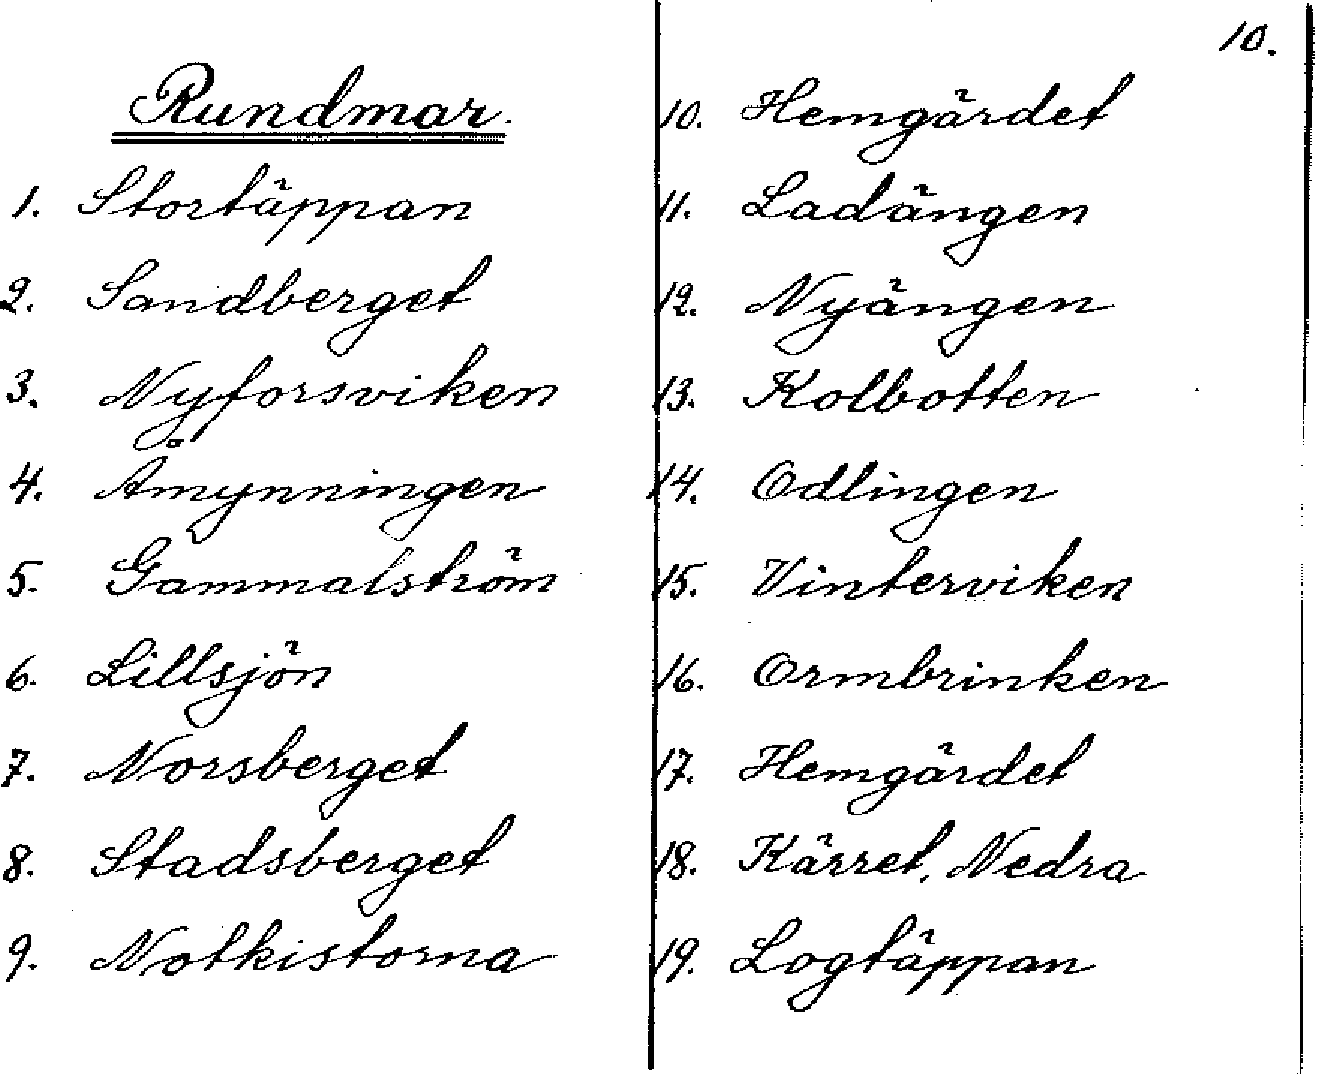 Rundmar.
1. Stortäppan
2. Sandberget
3. Nyforsviken
4. Åmynningen
5. Gammalström
6. Lillsjön
7. Norsberget
8. Stadsberget
9. Notkistorna
10.
10. Hemgärdet
11. Ladängen
12. Nyängen
13. Kolbotten
14. Odlingen
15. Vinterviken
16. Ormbrinken
17. Hemgärdet
18. Kärret, Nedra
19. Logtäppan